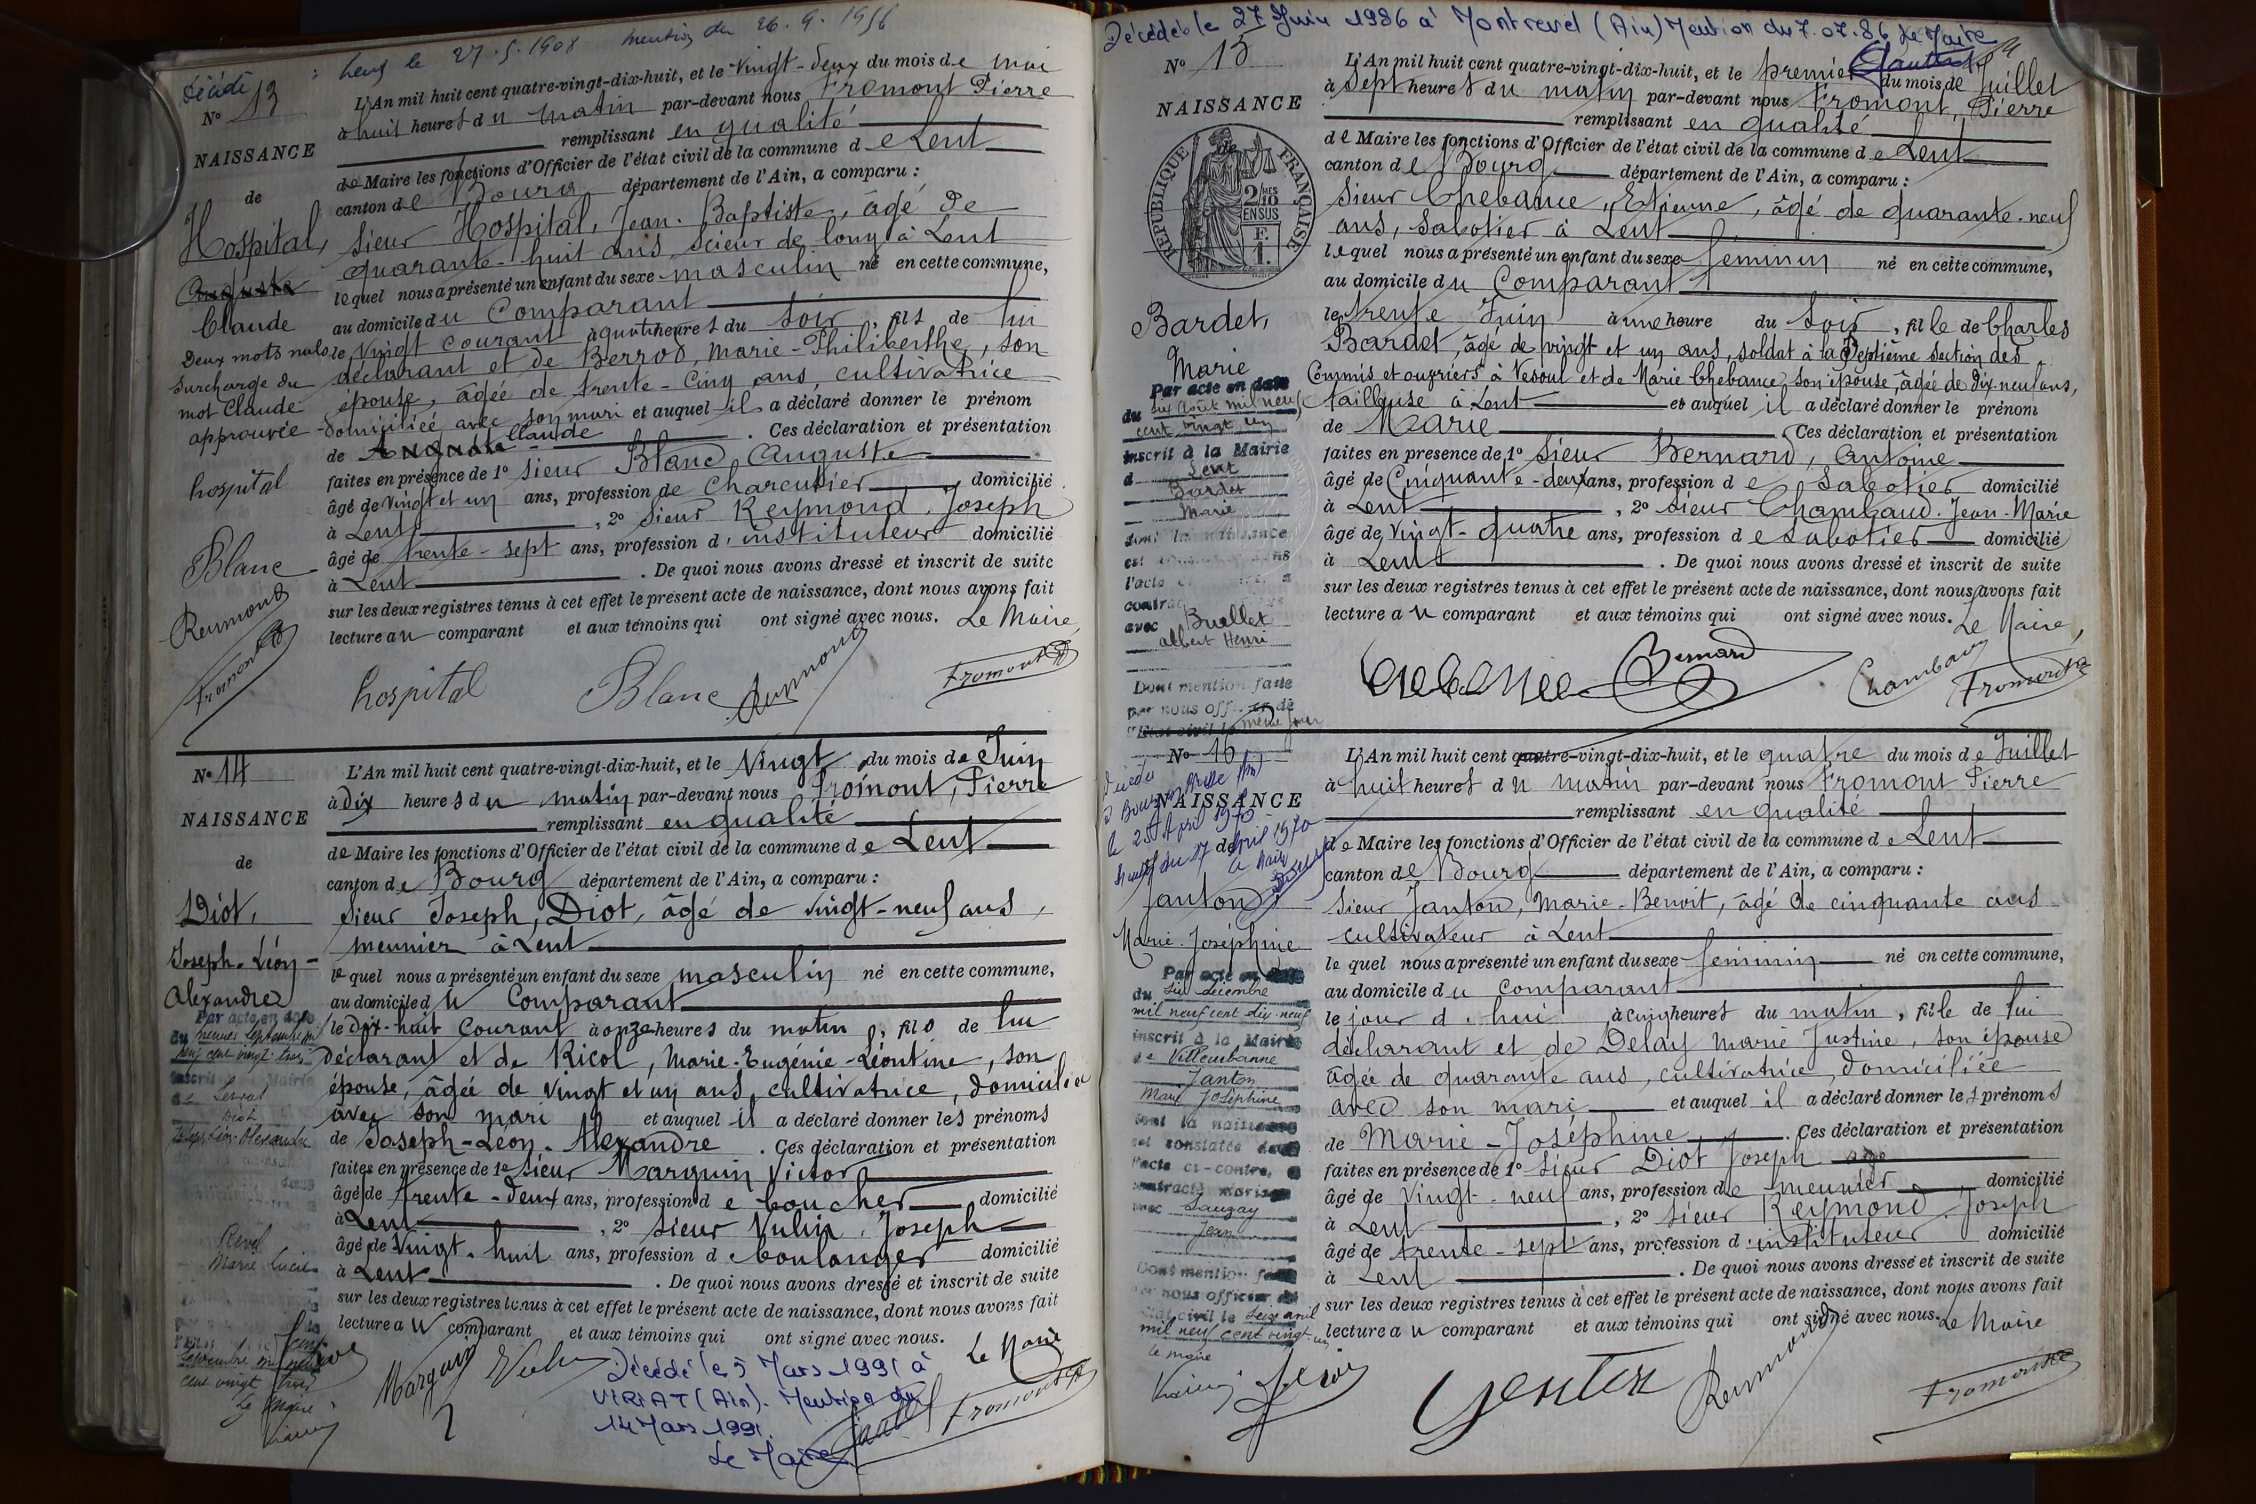 Décédé à Lent le 27.5.1908 mention du 26.9.1956
N° 13
NAISSANCE
de
Hospital,
Auguste
Claude
Deux mots nuls
surcharge du
mot Claude
approuvée
hospital
Blanc
Reymond
Fromont
L'An mil huit cent quatre-vingt-dix-huit, et le vingt-deux du mois de mai
à huit heures du matin par-devant nous Fromont Pierre
remplissant en qualité
de Maire les fonctions d'Officier de l'état civil de la commune de Lent
canton de Bourg département de l'Ain, a comparu :
sieur Hospital, Jean-Baptiste, âgé de
quarante-huit ans, scieur de long à Lent
lequel nous a présenté un enfant du sexe masculin né en cette commune,
au domicile du Comparant
le vingt courant à quatre heures du soir, fils de lui
déclarant et de Berrod, Marie-Philiberthe, son
épouse, âgée de trente-cinq ans, cultivatrice
domiciliée avec son mari et auquel il a déclaré donner le prénom
de Auguste Claude. Ces déclaration et présentation
faites en présence de 1° sieur Blanc Auguste
âgé de vingt et un ans, profession de charcutier domicilié
à Lent, 2° sieur Reymond, Joseph
âgé de trente-sept ans, profession d'instituteur domicilié
à Lent. De quoi nous avons dressé et inscrit de suite
sur les deux registres tenus à cet effet le présent acte de naissance, dont nous avons fait
lecture au comparant et aux témoins qui ont signé avec nous. Le Maire,
hospital Blanc Reymond Fromont
N° 14
NAISSANCE
de
Diot,
Joseph-Léon-
Alexandre
Par acte en date
du
neuf cent vingt-trois
inscrit à la Mairie
Diot
Joseph-Léon-Alexandre
Revel
Marie Lucie
septembre mil neuf
cent vingt trois
Le Maire
L'An mil huit cent quatre-vingt-dix-huit, et le vingt du mois de Juin
à dix heures du matin par-devant nous Fromont, Pierre
remplissant en qualité
de Maire les fonctions d'Officier de l'état civil de la commune de Lent
canton de Bourg département de l'Ain, a comparu :
sieur Joseph, Diot, âgé de vingt-neuf ans,
meunier à Lent
lequel nous a présenté un enfant du sexe masculin né en cette commune,
au domicile du Comparant
le dix-huit courant à onze heures du matin, fils de lui
déclarant et de Ricol, Marie-Eugénie-Léontine, son
épouse, âgée de vingt et un ans, cultivatrice, domiciliée
avec son mari et auquel il a déclaré donner les prénoms
de Joseph-Léon-Alexandre. Ces déclaration et présentation
faites en présence de 1° sieur Marguin Victor
âgé de trente-deux ans, profession de boucher domicilié
à Lent, 2° sieur Vulin, Joseph
âgé de vingt-huit ans, profession de boulanger domicilié
à Lent. De quoi nous avons dressé et inscrit de suite
sur les deux registres tenus à cet effet le présent acte de naissance, dont nous avons fait
lecture au comparant et aux témoins qui ont signé avec nous.
Le Maire
Marguin Vulin Fromont
Décédé le 5 Mars 1991 à
VIRIAT (Ain). Mention du
14 Mars 1991.
Le Maire
Décédée le 27 Juin 1986 à Montrevel (Ain) Mention du 7.07.86 Le Maire
N° 15
NAISSANCE
de
RÉPUBLIQUE FRANÇAISE
2 10MES
EN SUS
F.
1.
Bardet,
Marie
Par acte en date
du six Août mil neuf
cent vingt un
inscrit à la Mairie
d Lent
Bardet
Marie
dont la naissance
l'acte
avec Buellet
Albert Henri
Dont mention faite
par nous officier de
l'Etat civil le même jour
L'An mil huit cent quatre-vingt-dix-huit, et le premier du mois de Juillet
à sept heures du matin par-devant nous Fromont, Pierre
remplissant en qualité
de Maire les fonctions d'Officier de l'état civil de la commune de Lent
canton de Bourg département de l'Ain, a comparu :
sieur Chebance, Etienne, âgé de quarante-neuf
ans, sabotier à Lent
lequel nous a présenté un enfant du sexe feminin né en cette commune,
au domicile du Comparant
le trente Juin à une heure du soir, fille de Charles
Bardet, âgé de vingt et un ans, soldat à la septième section des
Commis et ouvriers à Vesoul et de Marie Chebance, son épouse, âgée de dix-neuf ans,
tailleuse à Lent et auquel il a déclaré donner le prénom
de Marie. Ces déclaration et présentation
faites en présence de 1° sieur Bernard, Antoine
âgé de Cinquante-deux ans, profession de sabotier domicilié
à Lent, 2° sieur Chambaud, Jean-Marie
âgé de vingt-quatre ans, profession de sabotier domicilié
à Lent. De quoi nous avons dressé et inscrit de suite
sur les deux registres tenus à cet effet le présent acte de naissance, dont nous avons fait
lecture au comparant et aux témoins qui ont signé avec nous. Le Maire,
Chebance Bernard Chambaud Fromont
N° 16
NAISSANCE
de
Janton
Marie-Joséphine
Par acte en date
du six décembre
mil neuf cent dix-neuf
inscrit à la Mairie
de Villeurbanne
Janton
Marie Joséphine
dont la naissance
est constatée dans
l'acte ci-contre, a
contracté mariage
avec Sauzay
Jean
Dont mention faite
par nous officier de
l'Etat civil le seize avril
mil neuf cent vingt-un
Le maire
L'An mil huit cent quatre-vingt-dix-huit, et le quatre du mois de Juillet
à huit heures du matin par-devant nous Fromont Pierre
remplissant en qualité
de Maire les fonctions d'Officier de l'état civil de la commune de Lent
canton de Bourg département de l'Ain, a comparu :
sieur Janton, Marie-Benoit, âgé de cinquante ans
cultivateur à Lent
lequel nous a présenté un enfant du sexe feminin né en cette commune,
au domicile du comparant
le jour d'hui à cinq heures du matin, fille de lui
déclarant et de Delay Marie Justine, son épouse
âgée de quarante ans, cultivatrice, domiciliée
avec son mari et auquel il a déclaré donner les prénoms
de Marie-Joséphine. Ces déclaration et présentation
faites en présence de 1° sieur Diot, Joseph
âgé de vingt-neuf ans, profession de meunier domicilié
à Lent, 2° sieur Reymond, Joseph
âgé de trente-sept ans, profession d'instituteur domicilié
à Lent. De quoi nous avons dressé et inscrit de suite
sur les deux registres tenus à cet effet le présent acte de naissance, dont nous avons fait
lecture au comparant et aux témoins qui ont signé avec nous. Le Maire
Reymond Fromont